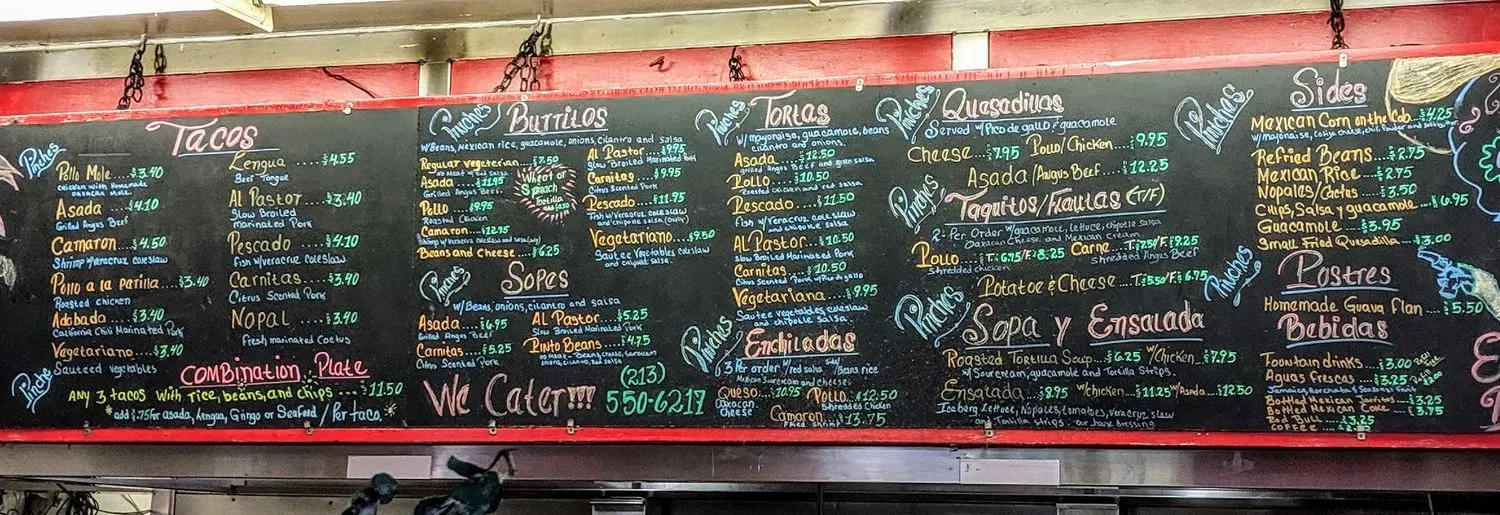 Pinches
Tacos
Pollo Mole....$3.40
chicken with Homemade
oaxacan mole.
Asada.....$4.10
Grilled Angus Beef
Camaron....$4.50
Shrimp w/veracruz coleslaw
Pollo a la parilla...$3.40
Roasted chicken
Adobada....$3.40
California Chili Marinated Pork
Vegetariano....$3.40
Sauteed vegetables
Kengua.....$4.55
Beef Tongue
Al Pastor....$3.40
Slow Broiled
Marinated Pork
Pescado.....$4.10
fish w/veracruz coleslaw
Carnitas....$3.40
Citrus Scented Pork
Nopal....$3.40
fresh marinated Cactus
Pinche
Combination Plate
Any 3 tacos with rice, beans, and chips....$11.50
*add $.75 for asada, Lengua, Gingo or Seafood / Per taco*
Pinches
Burritos
w/Beans, Mexican rice, guacamole, onions, cilantro and salsa
Regular vegeterian...$7.50
No Meat w/
Asada...$11.95
Grilled Angus Beef
Pollo...$9.95
Roasted Chicken
Camaron...$12.95
Shrimp w/veracruz coleslaw and salsa(only)
Beans and Cheese...$6.25
Wheat or
Spinach
Tortilla
Al Pastor...$9.95
Slow Broiled Marinated Pork
Carnitas...$9.95
Citrus Scented Pork
Pescado...$11.95
Fish w/Veracruz coleslaw
and chipotle salsa (only)
Vegetariano...$9.50
Sautee Vegetables coleslaw
and chipotle salsa.
Pinches
Sopes
w/Beans, onions, cilantro and salsa
Asada...$6.95
Grilled Angus Beef
Carnitas...$5.25
Citrus Scented Pork
Al Pastor...$5.25
Slow Broiled Marinated Pork
Pinto Beans...$4.75
No Meat-Beans, cheese,
onions, cilantro, red salsa
We Cater!!! (213)
550-6217
Pinches
Tortas
w/mayonaise, guacamole, beans
cilantro and onions.
Asada...$12.50
grilled Angus Beef and green salsa
Pollo...$10.50
Roasted chicken and red salsa
Pescado...$11.50
Fish w/Veracruz coleslaw
and chipotle salsa
Al Pastor...$10.50
Slow Broiled Marinated Pork
Carnitas...$10.50
Citrus Scented Pork
Vegetariana...$9.95
Sautee vegetables, coleslaw
and chipotle salsa.
Pinches
Enchiladas
3 Per order w/red salsa w/Beans rice
Mexican Sourcream and cheese.
Queso...$10.95
oaxacan
cheese
Pollo...$12.50
Shredded Chicken
Camaron...$13.75
fried shrimp
Pinches
Quesadillas
Served w/Pico de gallo & guacamole
Cheese...$7.95 Pollo/Chicken....$9.95
Asada/Angus Beef....$12.25
Pinches
Taquitos/Flautas (T/F)
2-Per Order w/guacamole, lettuce, chipotle salsa
Oaxacan Cheese and Mexican Cream
Pollo...T:$6.75/F:$8.25
shredded chicken
Carne...T:$7.50/F:$9.25
shredded Angus Beef
Potatoe & Cheese...T:$5.50/F:$6.75
Pinches
Sopa y Ensalada
Roasted Tortilla Soup...$6.25 w/Chicken..$7.95
w/Sourcream, guacamole and Tortilla Strips.
Ensalada...$8.95 w/chicken..$11.25 w/Asada..$12.50
Iceberg Lettuce, Nopales, tomatoes, veracruz slaw
and Tortilla strips. our house dressing
Pinches
Sides
Mexican Corn on the Cob...$4.25
w/mayonaise, cotija cheese, chili powder and
Refried Beans...$2.75
Mexican Rice...$2.75
Nopales/Cactus...$3.50
Chips, Salsa y guacamole...$6.95
Guacamole...$3.95
Small Fried Quesadilla...$3.00
Pinches
Postres
Homemade Guava flan....$5.50
Bebidas
Fountain drinks....$3.00
Aguas frescas....$3.25
Jamaica, Horchata & Seasonal fruits
Bottled Mexican Jarritos...$3.25
Bottled Mexican Coke...$3.75
Red Bull...$3.25
Coffee